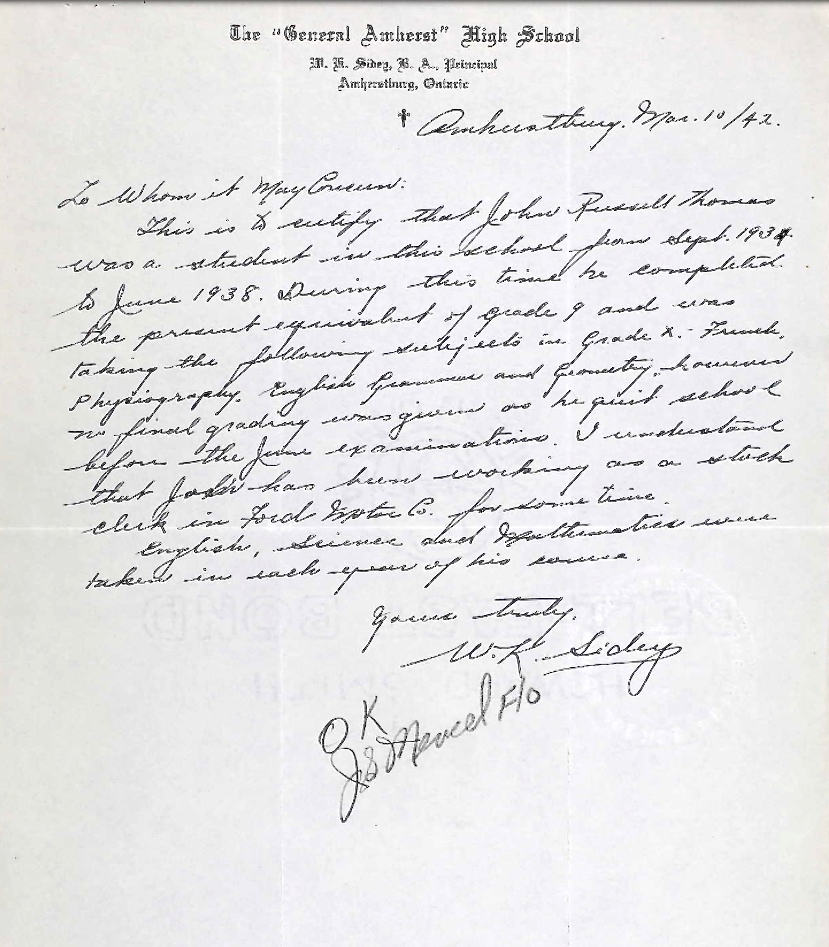 The "General Amherst" High School
W. K. Sidey, B. A., Principal
Amherstburg, Ontario
Amherstburg. Mar. 10/42.
To Whom it May Concern:
This is to certify that John Russell Thomas
was a student in this school from Sept. 1934
to June 1938. During this time he completed
the present equivalent of grade 9 and was
taking the following subjects in Grade X:- French,
Physiography, English Grammar and Geometry, however
no final grading was given as he quit school
before the June examinations. I understand
that John has been working as a stock
clerk in Ford Motor Co. for some time.
English, Science and Mathematics were
taken in each year of his course.
Yours truly,
W. K. Sidey
OK
F/O
BOND